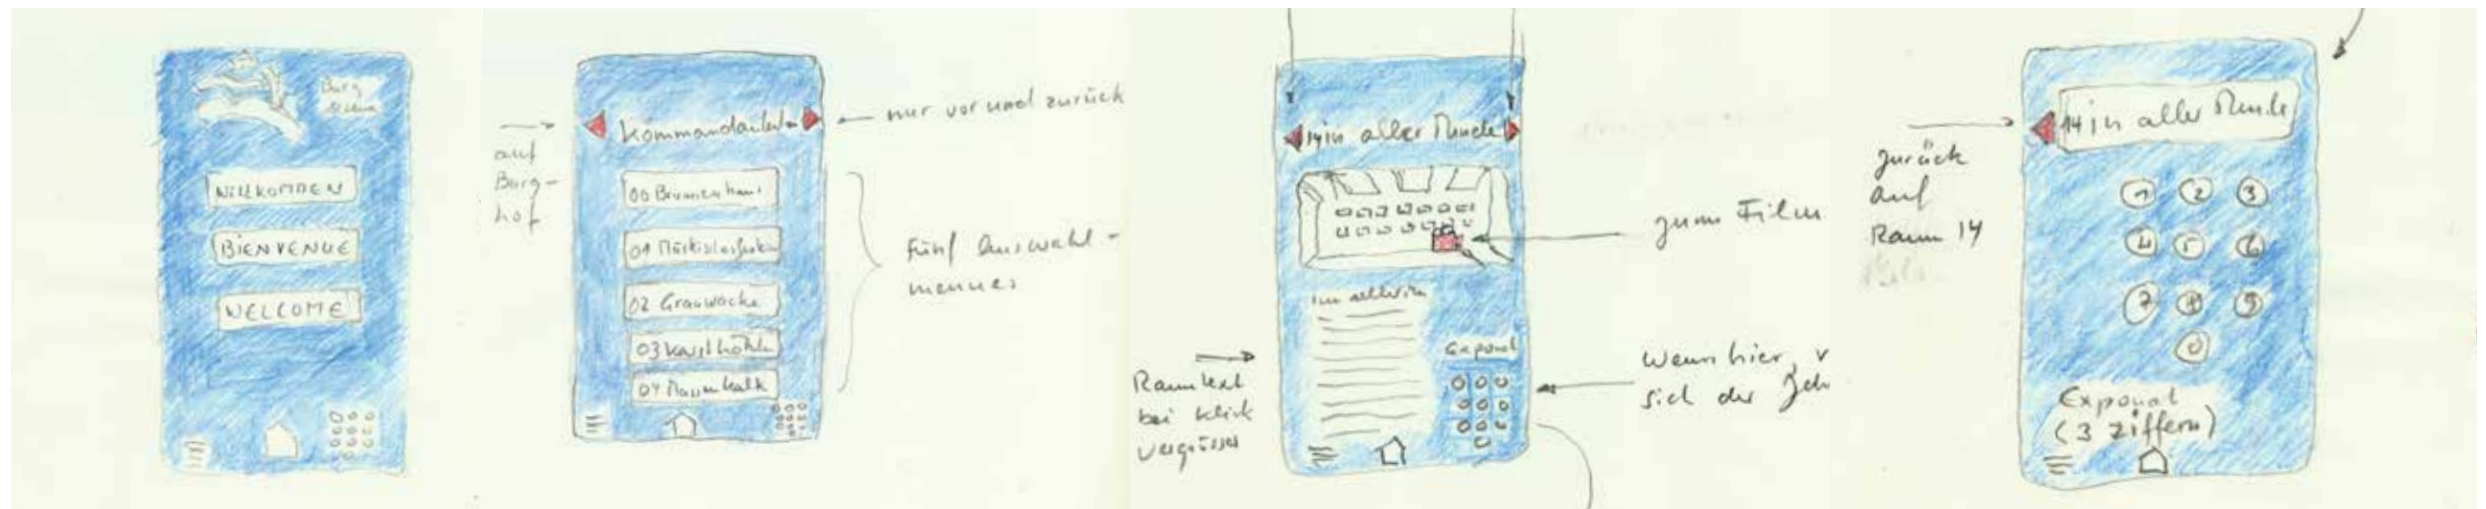 Burg
WILLKOMMEN
BIENVENUE
WELCOME
auf
Burg-
hof
nur vor und zurück
00 Brunnenhaus
01
02 Grauwacke
03 Karsthöhle
04 Massenkalk
Fünf Auswahl-
menues
14 in aller Munde
zum Film
Raumtext
bei Klick
vergrössert
Exponat
Wenn hier,
sich der
zurück
auf
Raum 14
14 in aller Munde
1 2 3
4 5 6
7 8 9
0
Exponat
(3 Ziffern)